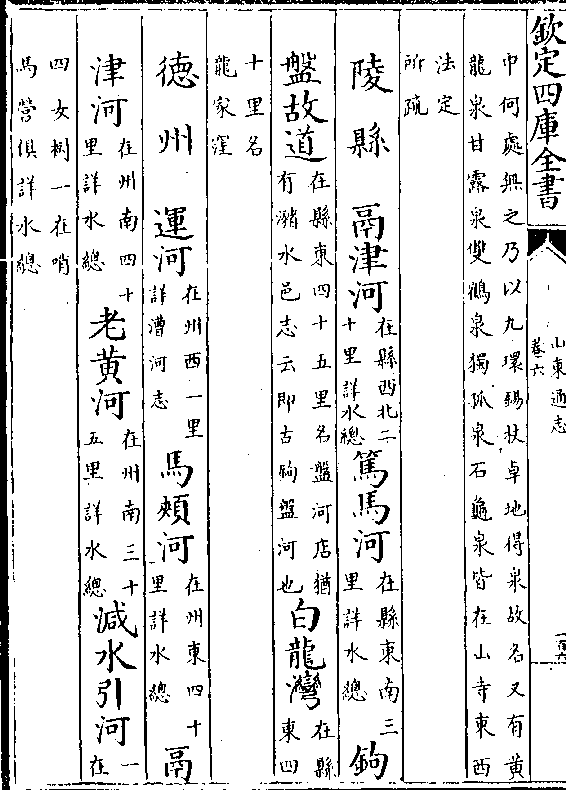 欽定四庫全書
山東通志
卷六
中何處無之乃以九環錫杖卓地得泉故名又有黄
龍泉甘露泉雙鶴泉獨孤泉石龜泉皆在山寺東西
法定
所疏
陵縣 鬲津河 在縣西北二十里詳水總 篤馬河 在縣東南三里詳水總 鉤
盤故道 在縣東四十五里名盤河店猶有瀦水邑志云即古鉤盤河也 白龍灣 在縣東四
十里名
龍家窪
德州 運河 在州西一里詳漕河志 馬頰河 在州東四十里詳水總 鬲
津河 在州南四十里詳水總 老黄河 在州南三十五里詳水總 減水引河 一在
四女樹一在哨
馬營俱詳水總